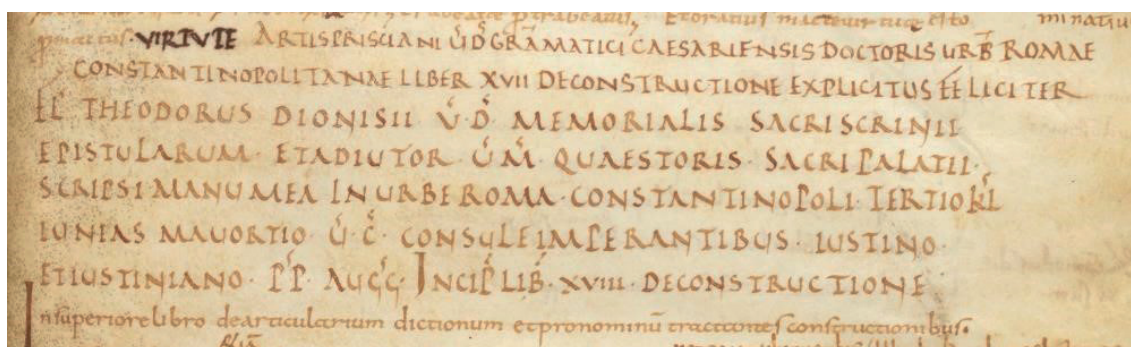 VIRTUTE ARTIS PRISCIANI U̅ D̅ GRAMATICI CAESARIENSIS DOCTORIS URB̅ ROMAE
CONSTANTINOPOLITANAE LIBER XVII DECONSTRUCTIONE EXPLICITUS FELICITER
FL̅ THEODORUS DIONISII U̅ D̅ MEMORIALIS SACRI SCRINII
EPISTULARUM · ET ADIUTOR U̅ M̅ · QUAESTORIS · SACRI PALATII ·
SCRIPSI · MANU MEA IN URBE ROMA · CONSTANTINOPOLI · TERTIO KL̅
IUNIAS MAUORTIO U̅ · C̅ · CONSULE IMPERANTIBUS · IUSTINO ·
ET IUSTINIANO · P̅P̅ · AUGG̅ · INCIP̅ LIB̅ · XVIII · DECONSTRUCTIONE
In superiore libro de articularium dictionum et pronominū constructionibus.